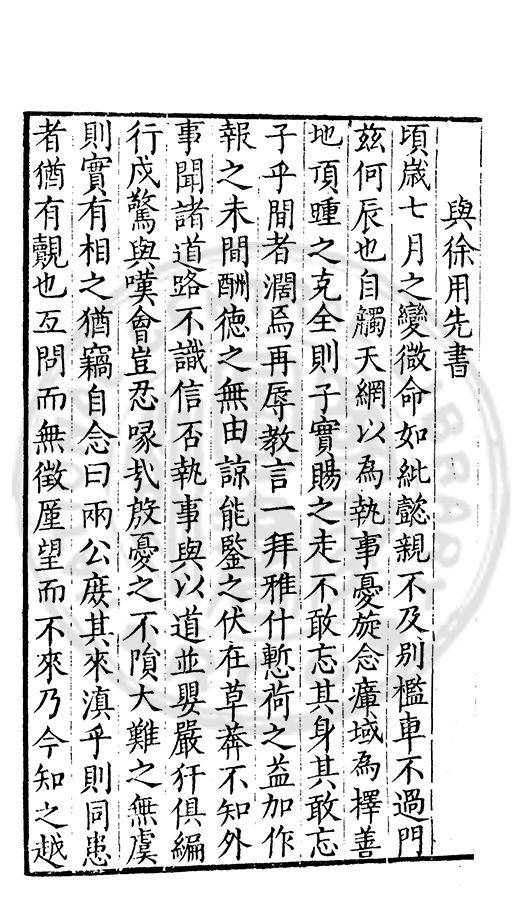 與徐用先書
頃歲七月之變微命如紕懿親不及别檻車不過門
兹何辰也自觸天網以為執事憂旋念瘴域為擇善
地頂踵之克全則子實賜之走不敢忘其身其敢忘
子乎間者濶焉再辱教言一拜雅什慙荷之益加作
報之未間酬德之無由諒能鑒之伏在草莽不知外
事聞諸道路不識信否執事與以道並嬰嚴犴俱編
行戍驚與嘆會豈忍喙㢤殷憂之不隕大難之無虞
則實有相之猶竊自念曰兩公庻其來滇乎則同患
者猶有覿也互問而無徵厓望而不來乃今知之越